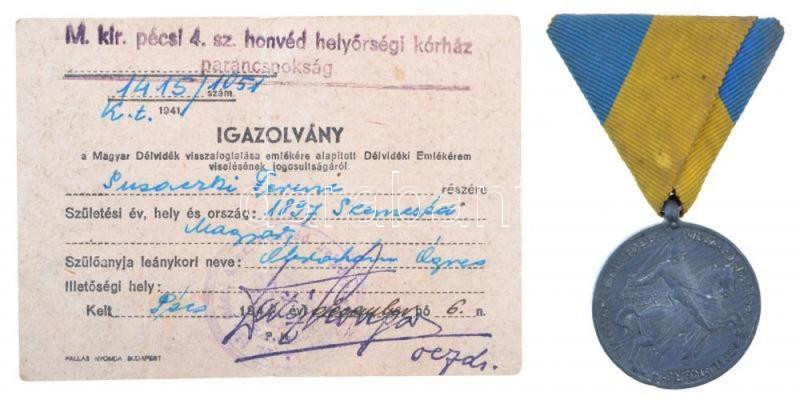 M. kir. pécsi 4. sz. honvéd helyőrségi kórház
parancsnokság
1415/1051 szám.
K.t. 1941
IGAZOLVÁNY
a Magyar Délvidék visszafoglalása emlékére alapított Délvidéki Emlékérem
viselésének jogosultságáról.
Ferenc részére
Születési év, hely és ország: 1897
Magyar,
Szülőanyja leánykori neve: Ábrahám Ágnes
Illetőségi hely:
Kelt Pécs 194 évi december hó 6. n.
P. H.
PALLAS NYOMDA BUDAPEST
darabanth